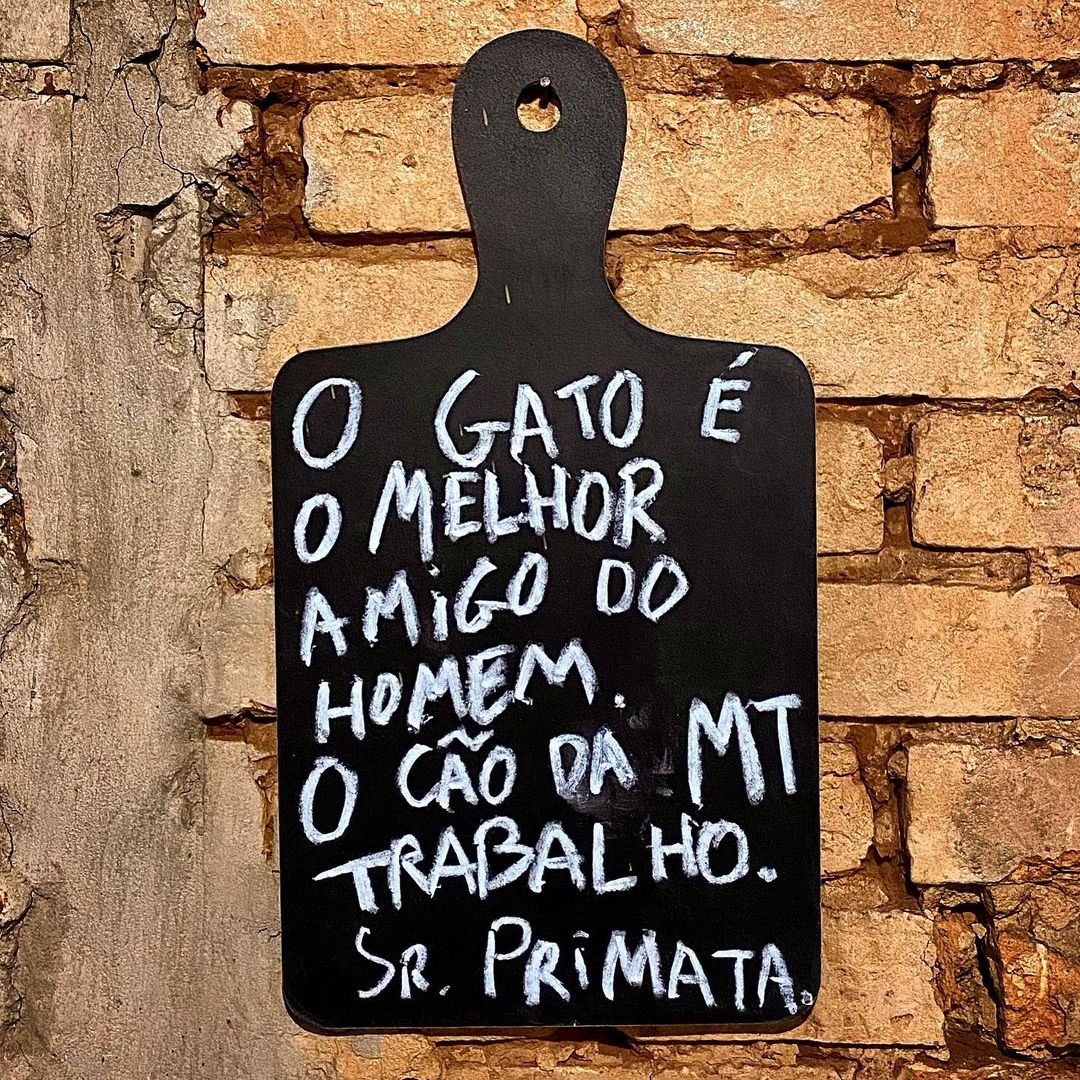 O GATO É
O MELHOR
AMiGO DO
HOMEM.
O CÃO DA MT
TRABALHO.
SR. PRiMATA.